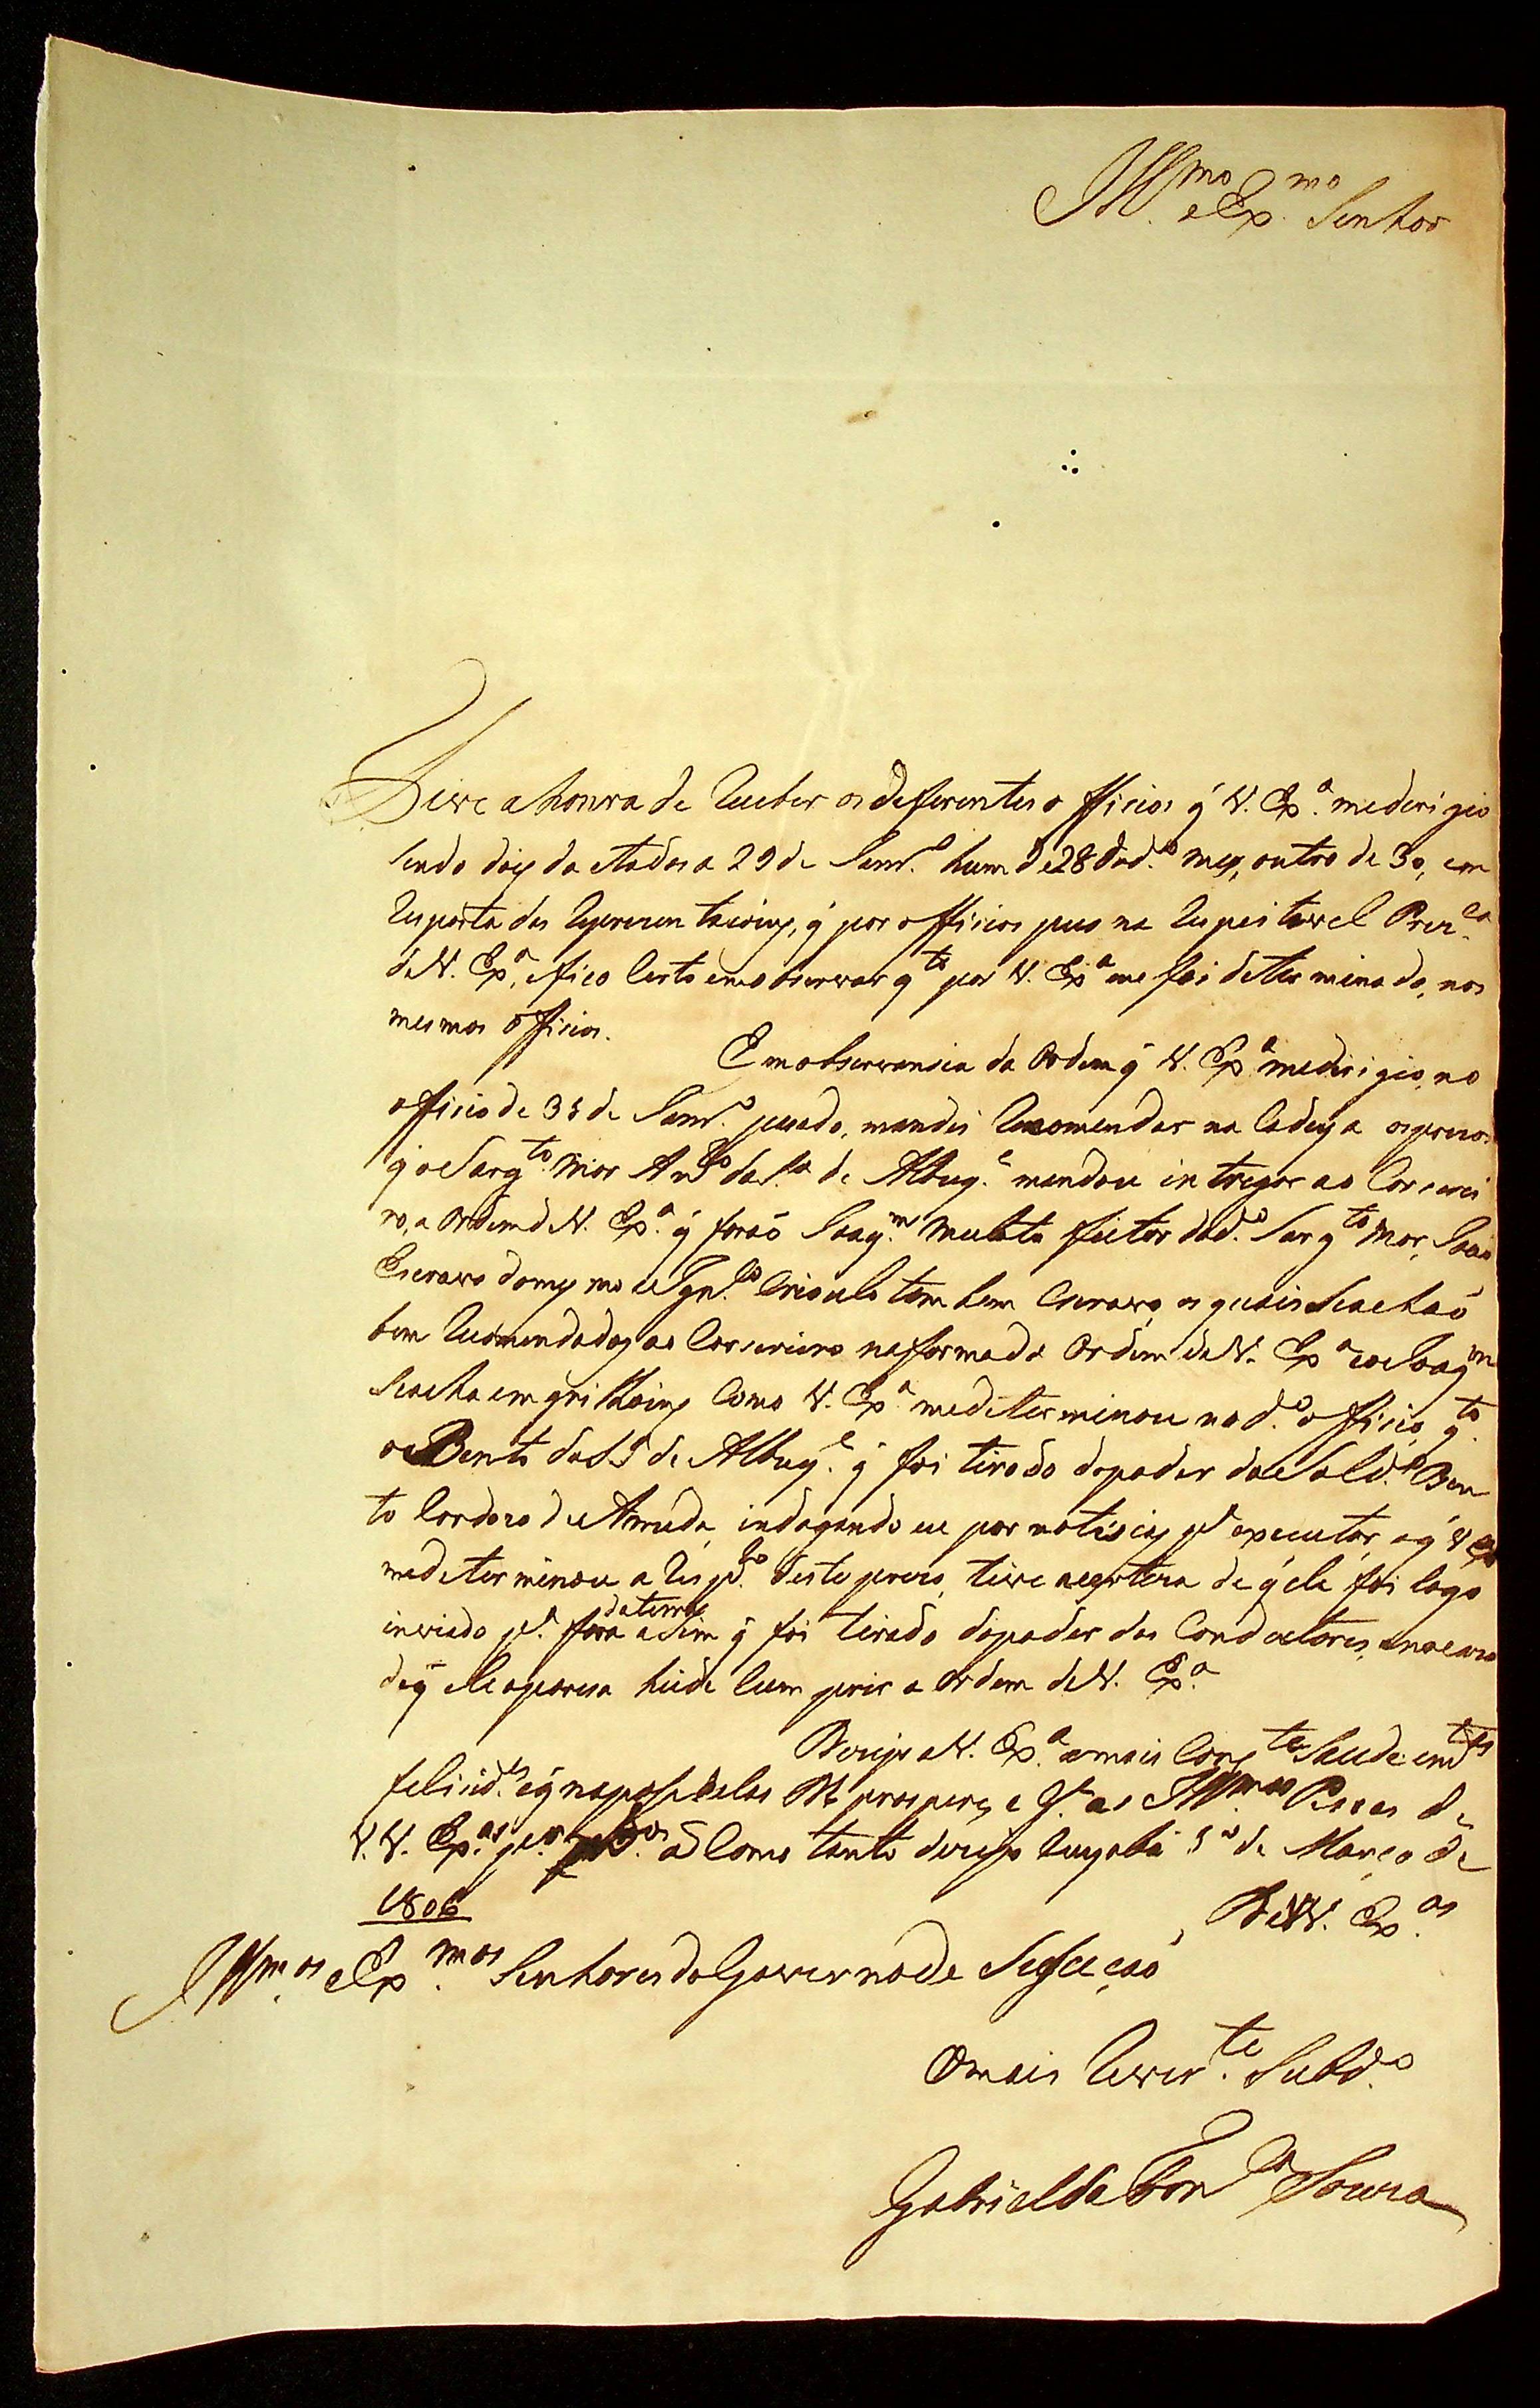 Ill.mo e Ex.mo Senhor
Tive a honra de Receber os deferentes officios q̃ V. Ex.a me derigio
sendo dois da ctados a 29 de Janr.o hum de 28 do d.o mes, outro de 30, em
Resposta das Reprezentaçoins, q̃ por officios pus na Respeitavel Prez.ca
de V. Ex.a, e fico Certo em observar q.to por V. Ex.a me foi determinado, nos
mesmos officios.
Em observansia da Ordem q̃ V. Ex.a me dirigio, no
officio de 31 de Janr.o pasado, mandei Recomendar na Cadeya os prezos
q̃ o Sarg.to Mor Ant.o da S.a de Albuq.e mandou intregar ao Carcerei
ro, a Ordem de V. Ex.a q̃ foraõ Joaq.m Mulato feitor do d.o Sarg.to Mor, Joaõ
Escravo do mesmo e Ign.co Crioulo tambem Escravo, os quais se achaõ
bem Recomendados ao Carcereiro na forma da Ordem de V. Ex.a e o Joaq.m
se acha em grilhoins Como V. Ex.a me determinou no d.o officio, q.to
a Bento da S.a de Albuq.e q̃ foi tirado do poder do Sold.o Ben
to Cordero de Arruda, indagando eu por notisias p.a executar, o q̃ V. Ex.a
me determinou a Resp.to deste prezo, tive a certeza de q̃ ele foi logo
inviado p.a fora da terra asim q̃ foi tirado do poder dos Conductores, e no cazo
de q̃ ele aparesa heide Cumprir a Ordem de V. Ex.a
Dezejo a V. Ex.a a mais Consp.te Saude em t.das
felicid.es e q̃ na posse delas D.s prospere, e G.e as Ill.mas Pessoas de
V.V. Ex.as p.r m.s an.os Como tanto dezejo Cuyabá 5 de Março de
1806
De V.V. Ex.as
Ill.mos e Ex.mos Senhores do Governo de Susceçaõ
O mais Rever.te Subd.o
Gabriel da Fon.ca Souza